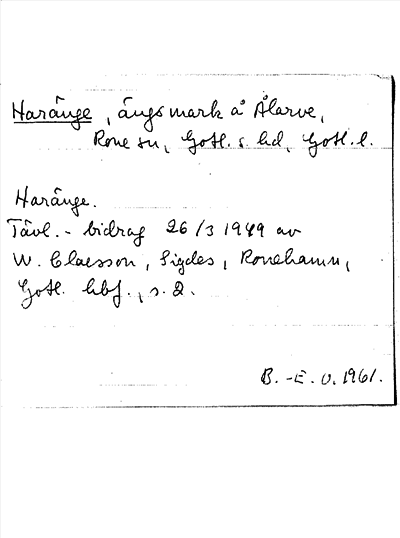 Haränge, ängsmark å Ålarve,
Rone sn, Gotl. s. hd, Gotl. l.
Haränge.
Tävl.-bidrag 26/3 1949 av
W. Claesson, Sigdes, Ronehamn,
Gotl. hbf., s. 2.
B.-E. O. 1961.